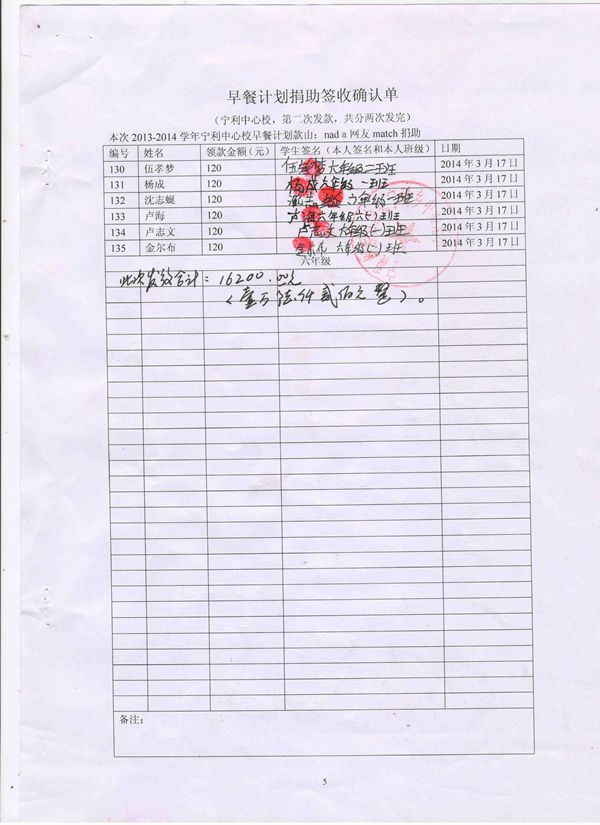 早餐计划捐助签收确认单
（宁利中心校，第二次发款，共分两次发完）
本次 2013-2014 学年宁利中心校早餐计划款山：nad a 网友 match 捐助
编号 姓名 领款金额（元） 学生签名（本人签名和本人班级） 日期
130 伍孝梦 120 伍孝梦 六年级二班 2014 年 3 月 17 日
131 杨成 120 杨成 六年级一班 2014 年 3 月 17 日
132 沈志蜒 120 六年级一班 2014 年 3 月 17 日
133 卢海 120 卢海 六年级六(一)班 2014 年 3 月 17 日
134 卢志文 120 卢志文 六年级(一)班 2014 年 3 月 17 日
135 金尔布 120 金尔布 六年级(一)班 2014 年 3 月 17 日
六年级
此次发放合计：16200.00元
（壹万陆仟贰佰元整）。
备注：
5